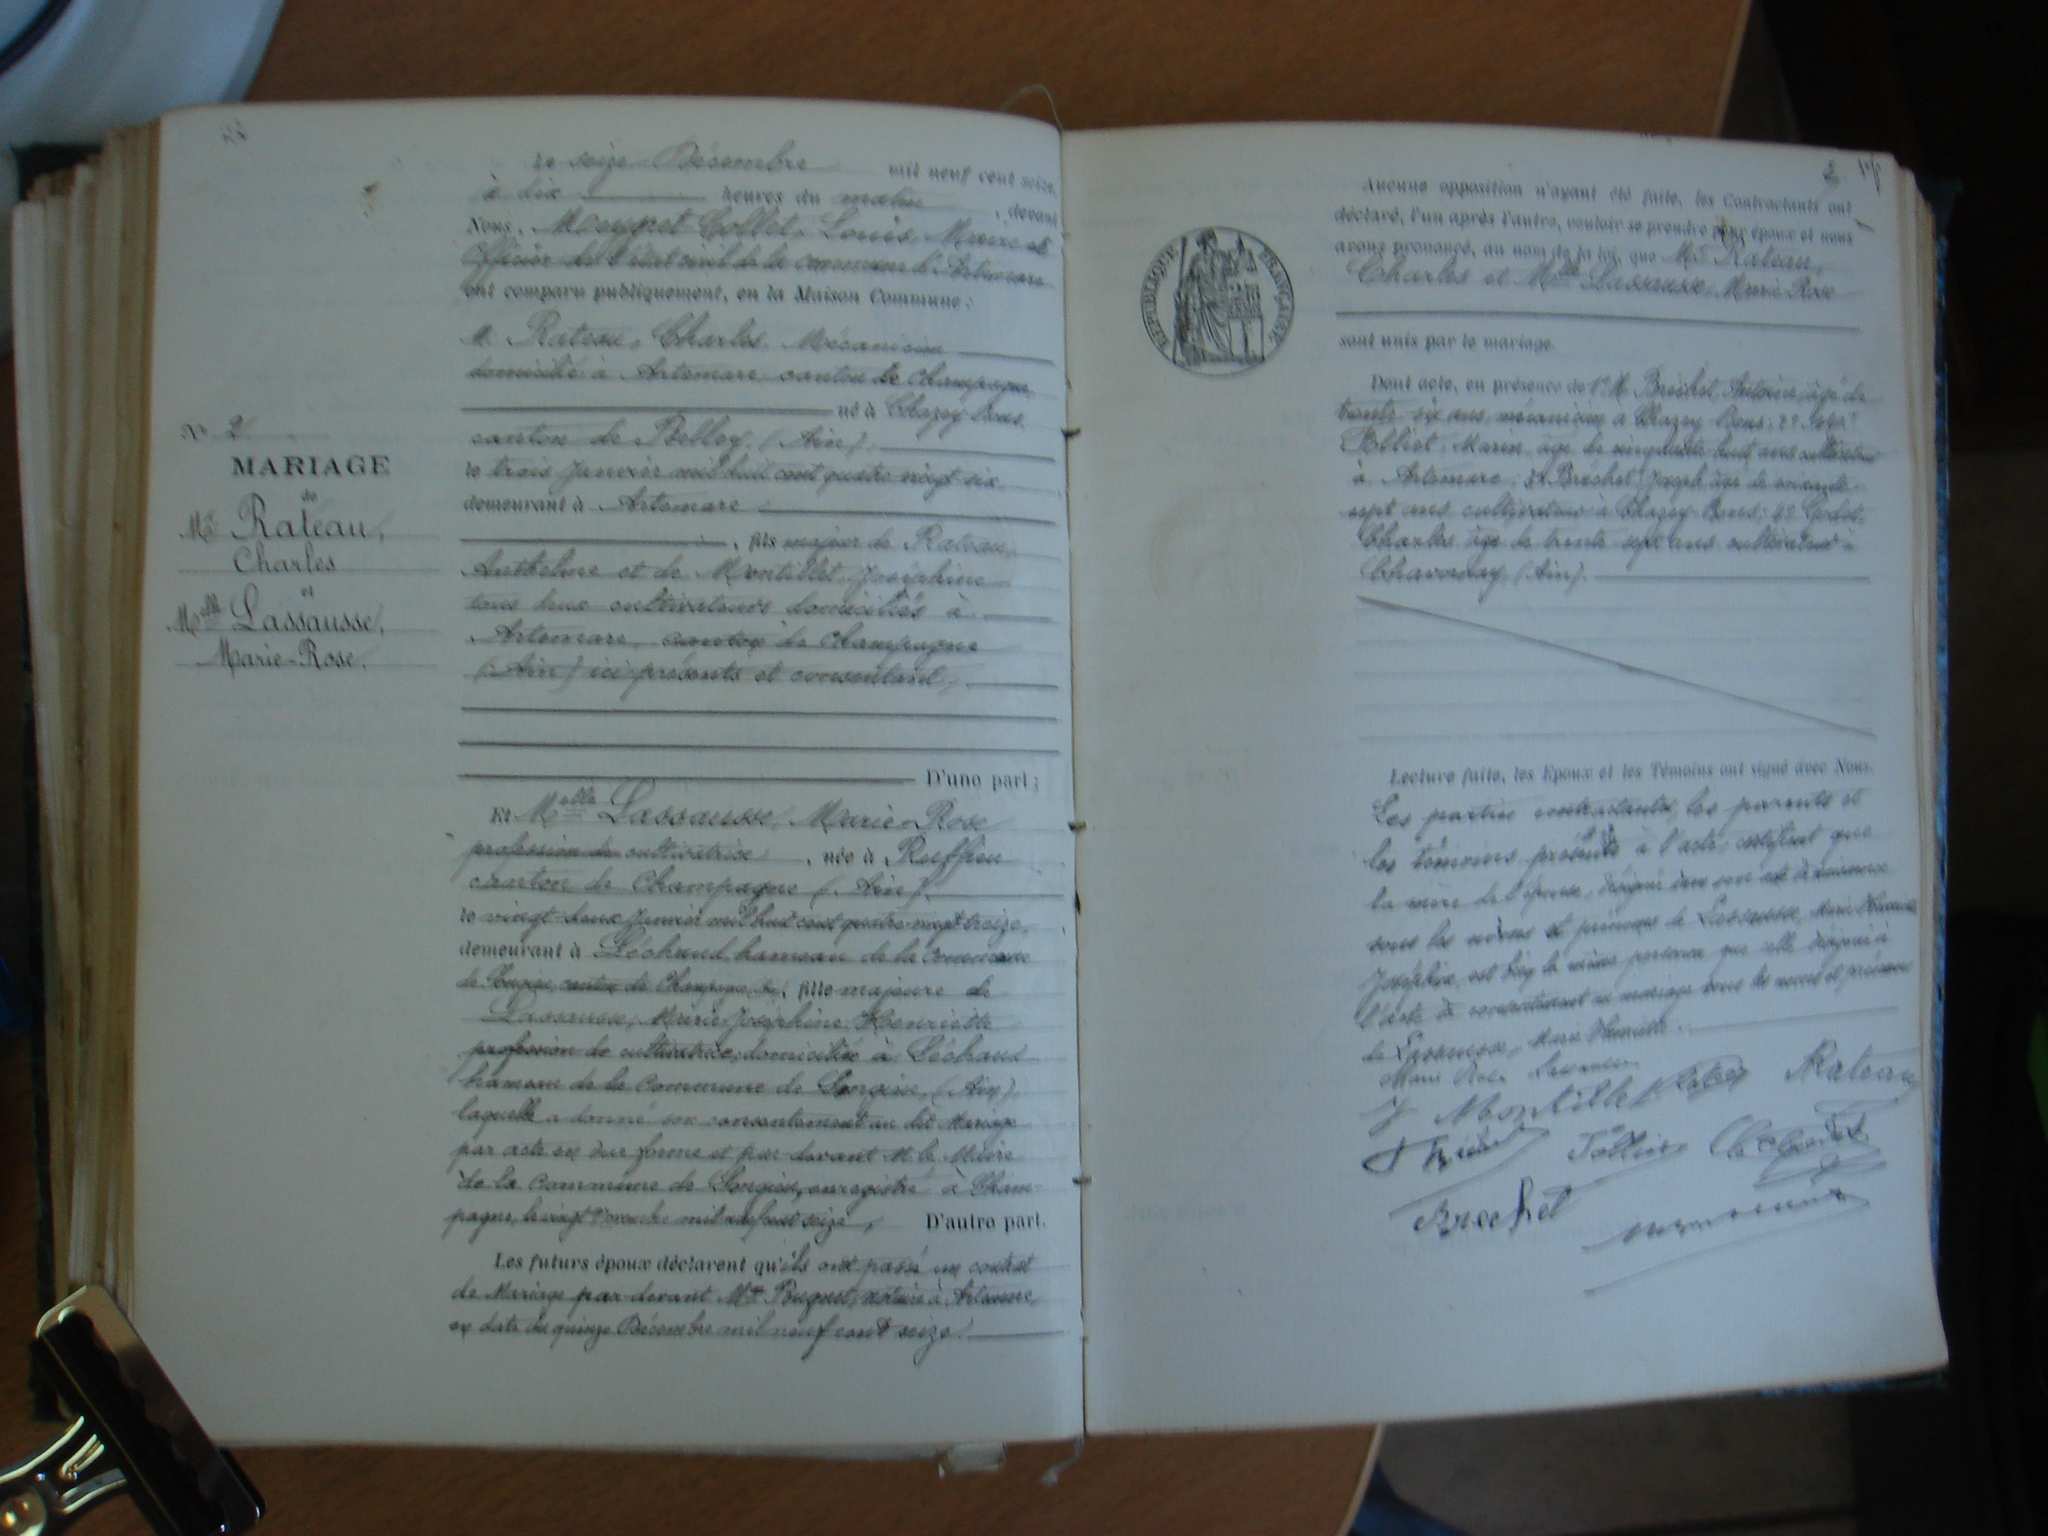 le seize Décembre mil neuf cent seize,
à dix heures du matin, devant
Nous, Louis, Maire et
Officier de l'état civil de la commune d'Artemare
ont comparu publiquement, en la Maison Commune :
M. Rateau, Charles. Mécanicien
domicilié à Artemare canton de Champagne
né à Chazey Bons
canton de Belley, (Ain)
le trois Janvier mil huit cent quatre vingt six
demeurant à Artemare
, fils majeur de Rateau,
Anthelme et de Montillet Joséphine
tous deux cultivateurs domiciliés à
Artemare, canton de Champagne
(Ain) ici présents et consentant,
D'une part ;
N° 2
MARIAGE
de
Mr Rateau,
Charles
et
Melle Lassausse,
Marie-Rose.
Et Melle Lassausse, Marie-Rose
profession de cultivatrice, née à Ruffieu
canton de Champagne (Ain)
le vingt deux Janvier mil huit cent quatre-vingt treize,
demeurant à Léchaud hameau de la Commune
de canton de Champagne, fille majeure de
Lassausse, Marie Joséphine Henriette
profession de cultivatrice, domiciliée à Léchaud
hameau de la Commune de (Ain)
laquelle a donné son consentement au dit Mariage
par acte en due forme et par devant M. le Maire
de la Commune de enregistré à Cham-
pagne, le vingt mil neuf cent seize, D'autre part.
Les futurs époux déclarent qu'ils ont passé un contrat
de Mariage par devant Me Puguet, notaire à Artemare,
en date du quinze Décembre mil neuf cent seize.
2 17
Aucune opposition n'ayant été faite, les Contractants ont
déclaré, l'un après l'autre, vouloir se prendre pour époux et nous
avons prononcé, au nom de la loi, que Mr Rateau,
Charles et Melle Lassausse, Marie Rose
RÉPUBLIQUE FRANÇAISE
sont unis par le mariage.
Dont acte, en présence de 1° M. Bréchet Antoine, âgé de
trente six ans, mécanicien à Chazey Bons ; 2°
Marin âgé de cinquante huit ans cultivateur
à Artemare ; 3° Bréchet Joseph âgé de soixante
sept ans cultivateur à Chazey Bons ; 4° Godet
Charles âgé de trente sept ans cultivateur à
Chavornay (Ain).
Lecture faite, les Epoux et les Témoins ont signé avec Nous.
Les parties contractantes, les parents et
les témoins présents à l'acte, certifient que
la mère de l'épouse, désignée dans son acte de naissance
sous les noms et prénoms de Lassausse, Marie Henriette
Joséphine, est bien la même personne que celle désignée à
l'acte de consentement au mariage sous les noms et prénoms
de Lassausse, Marie Henriette.
Marie Rose Lassausse
J Montillet Rateau Rateau
Brechet